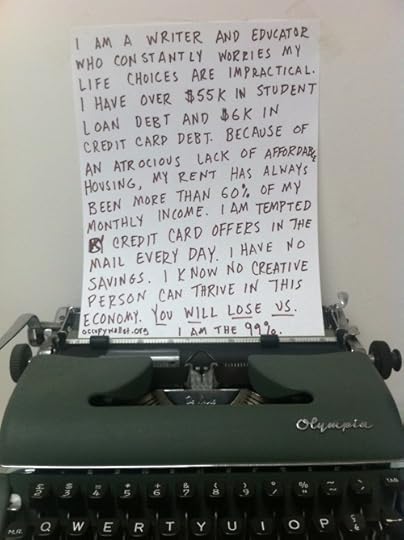 I AM A WRITER AND EDUCATOR
WHO CONSTANTLY WORRIES MY
LIFE CHOICES ARE IMPRACTICAL.
I HAVE OVER $55K IN STUDENT
LOAN DEBT AND $6K IN
CREDIT CARD DEBT. BECAUSE OF
AN ATROCIOUS LACK OF AFFORDABLE
HOUSING, MY RENT HAS ALWAYS
BEEN MORE THAN 60% OF MY
MONTHLY INCOME. I AM TEMPTED
BY CREDIT CARD OFFERS IN THE
MAIL EVERY DAY. I HAVE NO
SAVINGS. I KNOW NO CREATIVE
PERSON CAN THRIVE IN THIS
ECONOMY. YOU WILL LOSE US.
occupywallst.org I AM THE 99%.
Olympia
2 3 4 5 6 7 8 9
M.R. Q W E R T Y U I O P